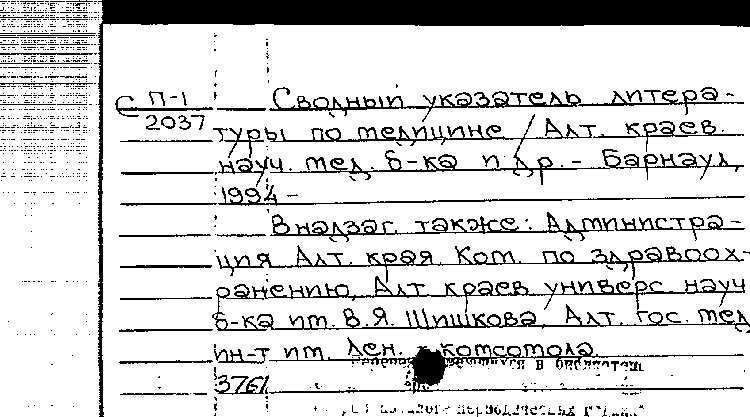 С П-1
2037
Сводный указатель литера-
туры по медицине / Алт. краев.
науч. мед. б-ка и др. - Барнаул,
1994 -
В надзаг. также: Администра-
ция Алт. края. Ком. по здравоох-
ранению, Алт. краев. универс. науч.
б-ка им. В.Я. Шишкова, Алт. гос. мед.
ин-т им. Лен. комсомола.
3761
в библиотеки